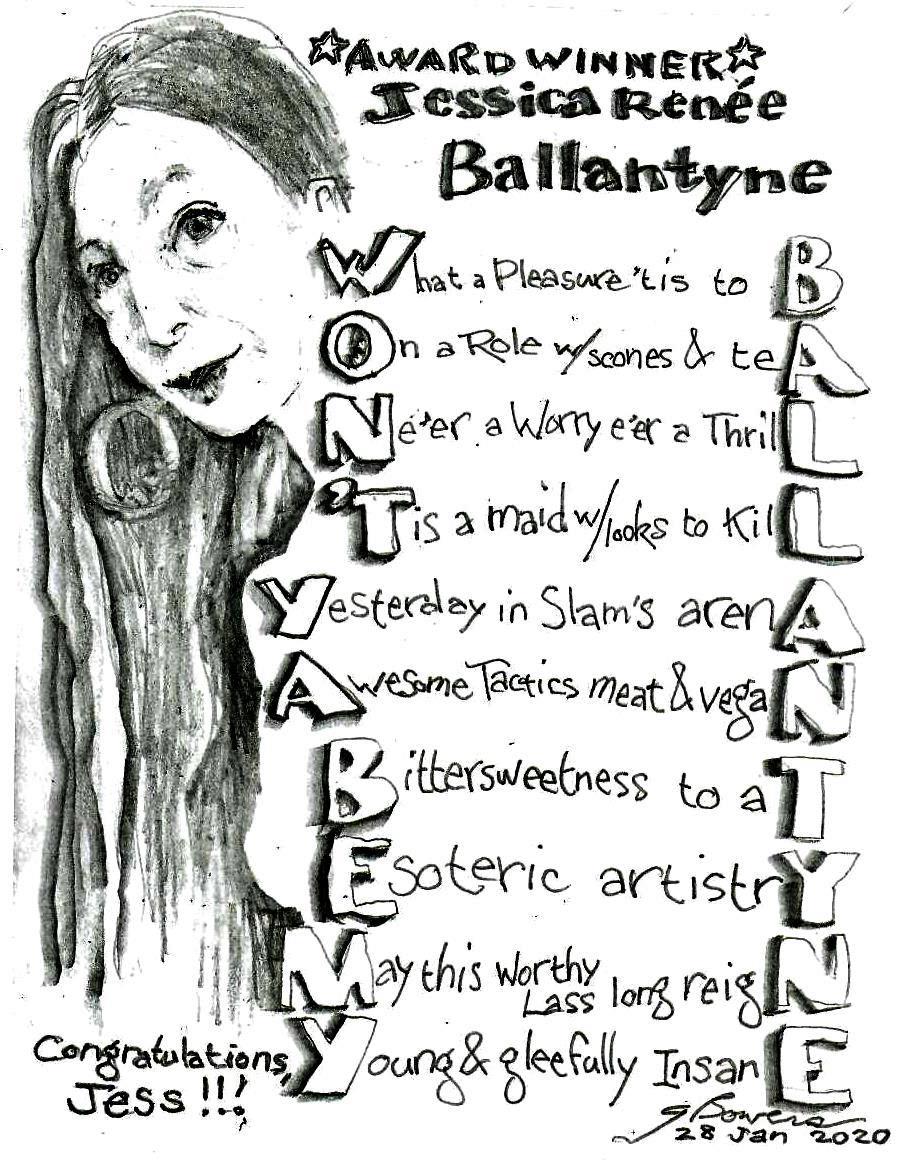 ☆AWARD WINNER☆
Jessica Renée
Ballantyne
What a Pleasure 'tis to B
On a Role w/scones & teA
Ne'er a Worry e'er a ThrilL
'Tis a maid w/looks to KilL
Yesterday in Slam's arenA
Awesome Tactics meat & vegaN
Bittersweetness to a T
Esoteric artistrY
May this Worthy Lass long reigN
Young & gleefully InsanE
Congratulations,
Jess !!!
G Bowers
28 Jan 2020